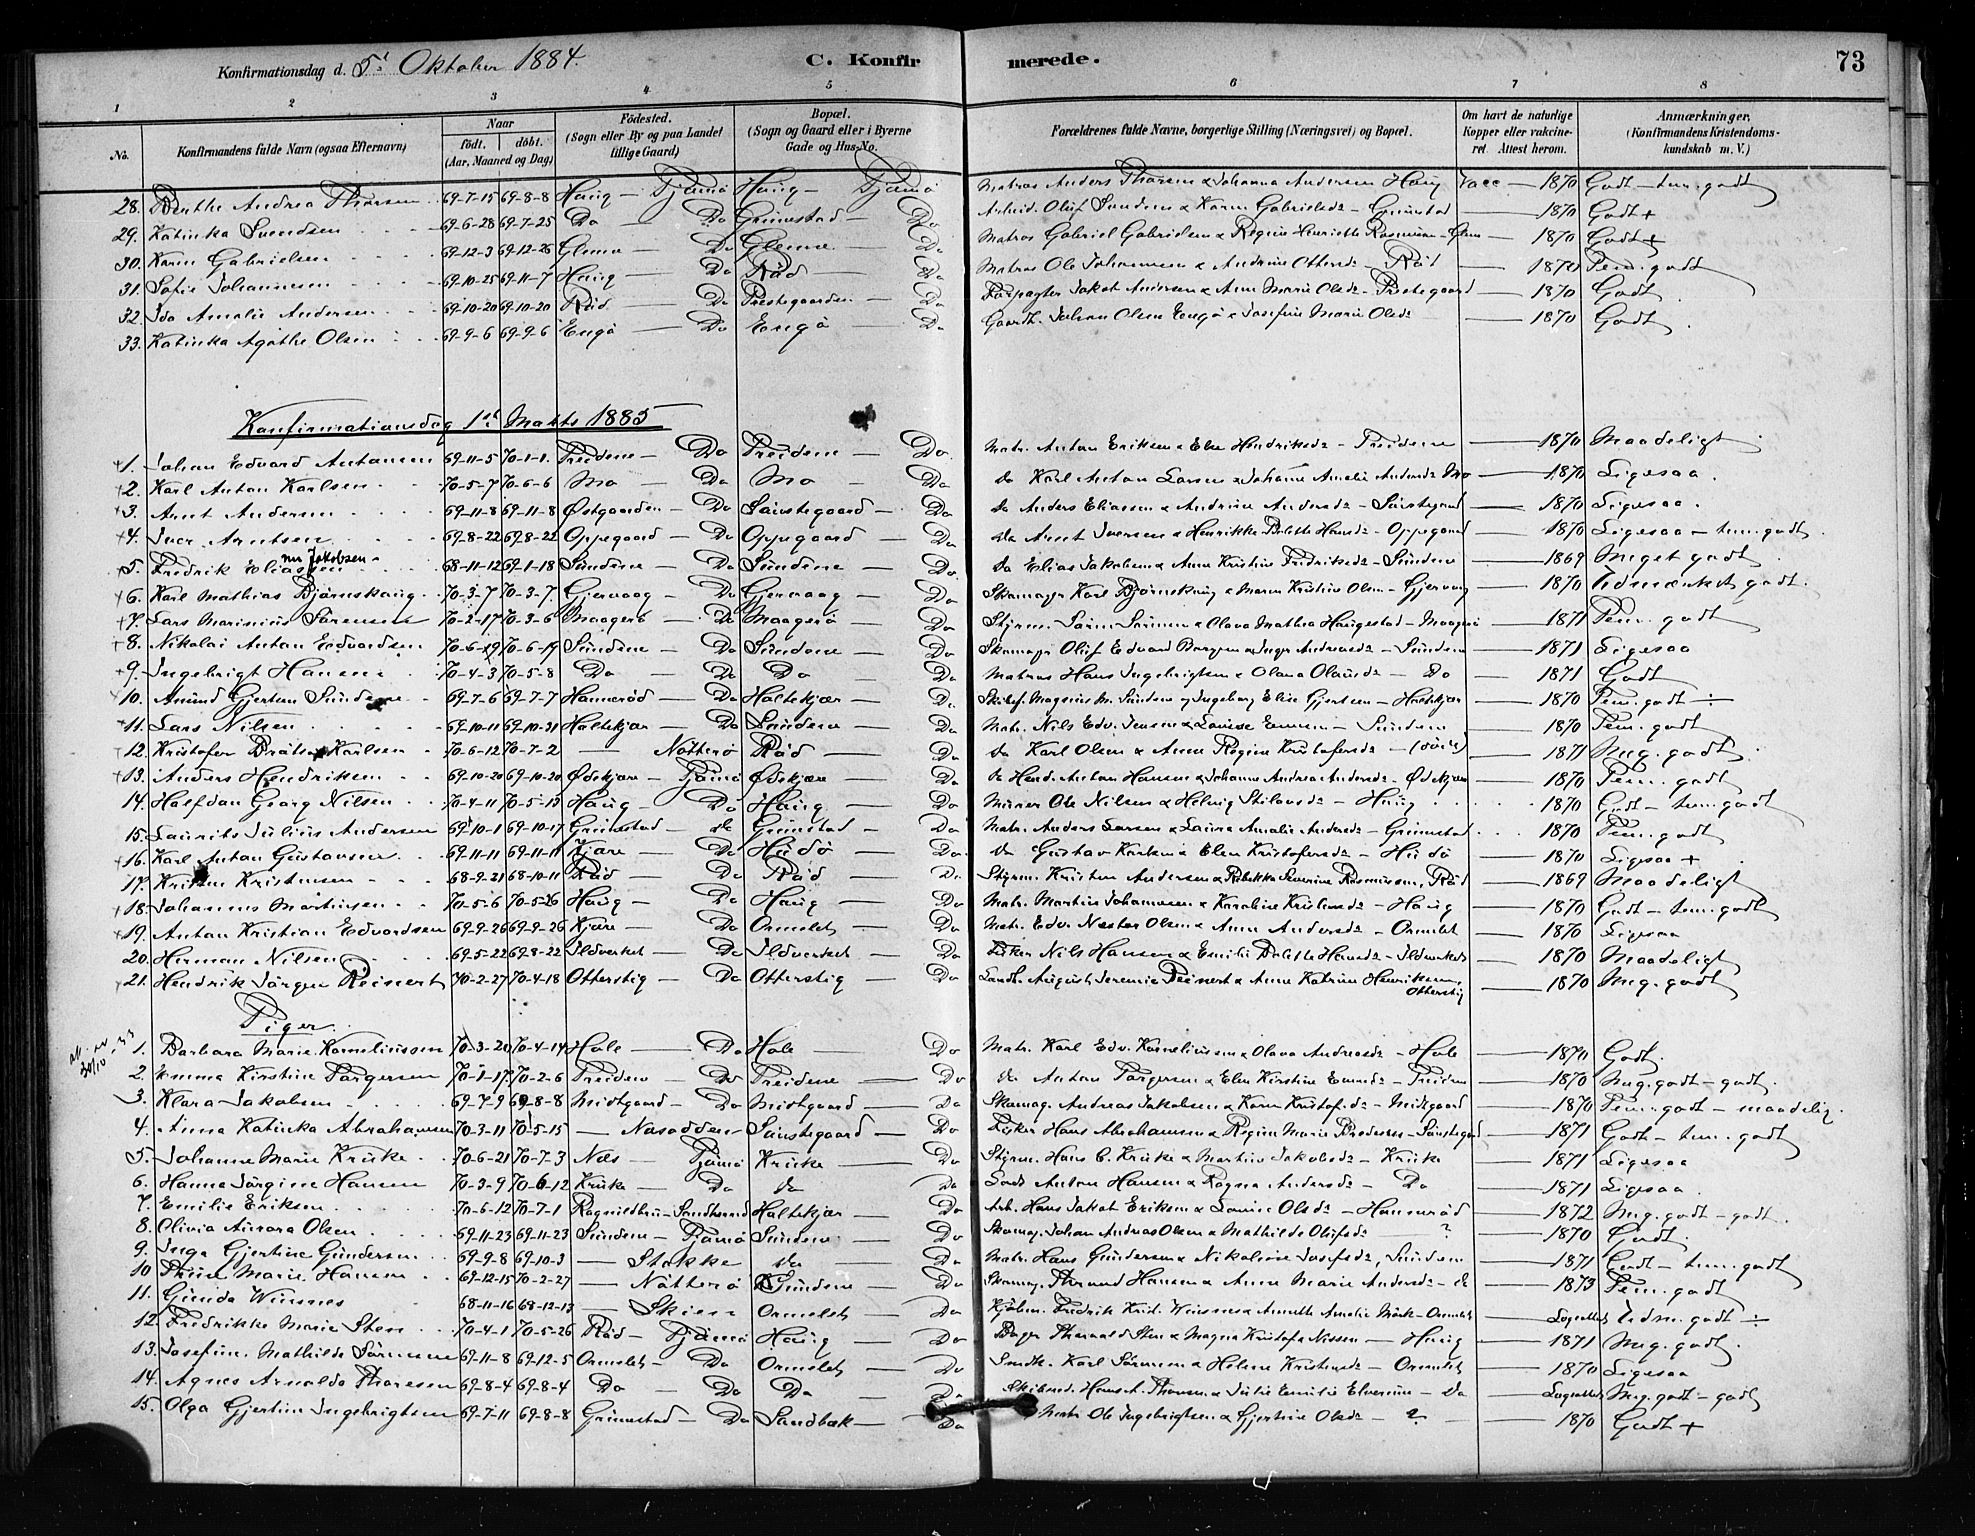 Konfirmationsdag d. 5t Oktober 1884. C. Konfirmerede. 73
1 2 3 4 5 6 7 8
No. Konfirmandens fulde Navn (ogsaa Efternavn) Naar født. døbt. (Aar, Maaned og Dag) Fødested. (Sogn eller By og paa Landet tillige Gaard) Bopæl. (Sogn og Gaard eller i Byerne Gade og Hus-No. Forældrenes fulde Navne, borgerlige Stilling (Næringsvei) og Bopæl. Om havt de naturlige Kopper eller vakcineret Attest herom. Anmærkninger. (Konfirmandens Kristendomskundskab m. V.)
28. Berthe Andrea Thorsen 69-7-15 69-8-8 Haug - Tjømø Haug - Tjømø Matros Anders Thorsen & Johanna Andersen Haug Vacc - 1870 Godt - tem. godt
29. Katinka Svendsen 69-6-28 69-7-25 Do Do Grimestad - Do Arbeid. Oluf Svendsen & Karen Gabrielsd - Grimstad - 1870 Godt +
30. Karen Gabrielsen 69-12-3 69-12-26 Glenne - Do Glenne - Do Matros Gabriel Gabrielsen & Regine Henriette Rasmussen - Glenne - 1870 Godt +
31. Sofie Johannesen 69-10-25 69-11-7 Haug - Do Råd - Do Matros Ole Johannesen & Andrine Ottersd - Råd - 1870 Tem. godt
32. Ida Amalie Andersen 69-10-20 69-10-20 Råd - Do Prestegaarden - Do Forpagter Jakob Andersen & Anne Marie Olsd - Prestegaard - 1870 Godt
33. Katinka Agathe Olsen 69-9-6 69-9-6 Engø - Do Engø - Do Gaardb. Johan Olsen Engø & Josefine Marie Olsd - 1870 Godt
Konfirmationsdag 1st Marts 1885
1. Johan Edvard Antonsen 69-11-5 70-1-1 Treidene - Do Treidene - Do Matr. Anton Eriksen & Else Hendriksd - Treidene - 1870 Maadeligt
2. Karl Anton Karlsen 70-5-7 70-6-6 Mo - Do Mo - Do do Karl Anton Larsen & Johanne Amalie Andersd Mo - 1870 Ligesaa
3. Arnt Andersen 69-11-8 69-11-8 Østgaarden - Do Sønstegaard - Do do Anders Eliassen & Andrine Andersd - Sønstegaard - 1870 Ligesaa
4. Iver Arntsen 69-8-22 69-8-22 Oppegaard - Do Oppegaard - Do do Arnt Iversen & Henrikke Bolette Hansd - Oppegaard - 1870 Ligesaa - tem. godt
5. Fredrik Eliassen nu Jakobsen 68-11-12 69-1-18 Sundene - Do Sundene - Do do Elias Jakobsen & Anne Kristine Fredriksd - Sundene - 1869 Meget godt
6. Karl Mathias Bjørnskaug 70-3-7 70-3-7 Gjervaag - Do Gjervaag - Do Skomager Karl Bjørnskaug & Maren Kristine Olsen - Gjervaag - 1870 Udmærket godt
7. Lars Marinius Sørensen 70-2-17 70-3-6 Maagerø - Do Maagerø - Do Styrm. Søren Sørensen & Olava Mathea Haugestad - Maagerø - 1871 Tem. godt
8. Nikolai Anton Edvardsen 70-6-19 70-6-19 Sundene - Do Sundene - Do Skomager Oluf Edvard & Inger Andreasd - Sundene - 1871 Ligesaa
9. Ingebrigt Hansen 70-4-3 70-5-8 Do - Do Do Do Matros Hans Ingebrigtsen & Olava Olausd - Do - 1871 Godt
10. Amund Gjertsen Sundene 69-7-6 69-7-7 Hannerød - Do Holtekjær - Do Skibsf. Magnus M. Sundene og Ingeborg Elise Gjertsen - Holtekjær - 1870 Tem. godt ÷
11. Lars Nilsen 69-10-11 69-10-31 Holtekjær - Do Sundene - Do Matr. Nils Edv. Jensen & Lovise - Sundene - 1870 Tem. godt
12. Kristofer Karlsen 70-6-12 70-7-2 - Nøtterø Råd - Do do Karl Olsen & Anne Regine Kristofersd - 1871 Meg. godt
13. Anders Hendriksen 69-10-20 69-10-20 Ødekjære - Tjømø Ødekjære - Do Hend. Anton Hansen & Johanne Andrea Andersd - Ødekjære - 1870 Tem. godt
14. Halfdan Georg Nilsen 70-4-11 70-5-13 Haug - Do Haug - Do Murer Ole Nilsen & Helvig - Haug 1870 Godt - tem. godt
15. Laurits Julius Andersen 69-10-1 69-10-17 Grimstad - do Grimstad - Do Matr. Anders Larsen & Laura Amalie Andersd - Grimestad 1870 Tem. godt
16. Karl Anton Gustavsen 69-11-11 69-11-11 Kjære - Do Hudø - Do do Gustav & Elen Kristofersd - Hudø - 1870 Ligesaa +
17. Kristen Kristensen 68-9-21 68-10-11 Råd - Do Råd - Do Styrm. Kristen Andersen & Rebekka Severine Rasmussen, Råd - 1869 Maadeligt
18. Johannes Martinsen 70-5-6 70-5-26 Haug - Do Haug - Do Matr. Martin Johannesen & Karoline Kristensd - Haug - 1870 Godt - tem. godt
19. Anton Kristian Edvardsen 69-9-26 69-9-26 Kjære - Do Ormelet - Do Matr. Edv. Olsen & Anne Andersd - Ormelet - 1870 Ligesaa
20. Herman Nilsen 69-5-22 69-8-22 Ildverket - Do Ildverket - Do Fisker Nils Hansen & Emilie Bolette Hansd - Ildverket - 1870 Maadeligt
21. Hendrik Jørgen Reinert 70-2-27 70-4-18 Otterstig - Do Otterstig - Do Landh. August Jeremie Reinert & Anne Katrine Henriksen, Otterstig - 1870 Meg. godt
Piger
1. Barbara Marie Korneliussen 70-3-20 70-4-14 Hole - Do Hole - Do Matr. Karl Edv. Korneliussen & Olava Andreasd - Hole - 1870 Godt
2. Emma Kirstine Torgersen 70-1-17 70-2-6 Treidene - Do Treidene - Do do Anton Torgersen & Elen Kirstine - Treidene - 1870 Meg. godt - godt
3. Klara Jakobsen 69-7-9 69-8-8 Midtgaard - Do Midtgaard - Do Skomag. Andreas Jakobsen & Karen Kristofd - Midtgaard - 1870 Tem. godt - maadelig
4. Anna Katinka Abrahamsen 70-3-11 70-5-15 - Nasodden Sønstegaard - Do Fisker Hans Abrahamsen & Regine Marie - Sønstegaard - 1871 Godt - tem. godt
5. Johanne Marie Kruke 70-6-21 70-7-3 Næs - Tjømø Kruke - Do Styrm. Hans C. Kruke & Martine Jakobsd - Kruke - 1871 Ligesaa
6. Hanna Jørgine Hansen 70-3-9 70-6-12 Kruke - Do do - Do Lods Anton Hansen & Ragna Andersd - Do - 1871 Ligesaa
7. Emilie Eriksen 70-6-12 70-7-1 - Sandherred Holtekjær - Do Arb. Hans Jakob Eriksen & Lovise Olsd - Hannerød - 1872 Meg. godt - godt
8. Olivia Aurora Olsen 69-11-23 69-11-23 Sundene - Tjømø Sundene - Do Skomag. Johan Andreas Olsen & Mathilde Olufsd - ? - 1870 Godt
9. Inga Gjertine Gundersen 69-9-8 69-10-3 - Stokke do - Do Matr. Hans Gundersen & Nikoline Josefsd, Sundene - 1871 Godt - tem. godt
10. Marie Hansen 69-12-15 70-2-27 - Nøtterø Sundene - Do Skomag. Hansen & Anne Marie Andersd - do - 1873 Tem. godt
11. Gunda Winsnes 68-11-16 68-12-13 - Skien Ormelet - Do Kjøbm. Fredrik Krist. Winsnes & Annette Amalie Mørk - Ormelet - Udm. godt ÷
12. Fredrikke Marie Sten 70-4-1 70-5-26 Råd - Tjømø Haug - Do Bager Tharald Sten & Magna Kristofa Nissen - Haug - 1871 Meg. godt
13. Josefine Mathilde Sørensen 69-11-8 69-12-5 Ormelet - Do Ormelet - Do Landh. Karl Sørensen & Helene Kristensd - Ormelet - 1870 Ligesaa
14. Agnes Arnolda Thoresen 69-8-4 69-8-4 Do - Do Do - Do Skibsred. Hans A. Thoresen & Julie Emilie - do - Meg. godt - godt
15. Olga Gjertine Ingebrigtsen 69-7-11 69-8-8 Grimestad - Do Sandbæk - Do Matr. Ole Ingebrigtsen & Gjertine Olsd - ? - 1870 Godt +